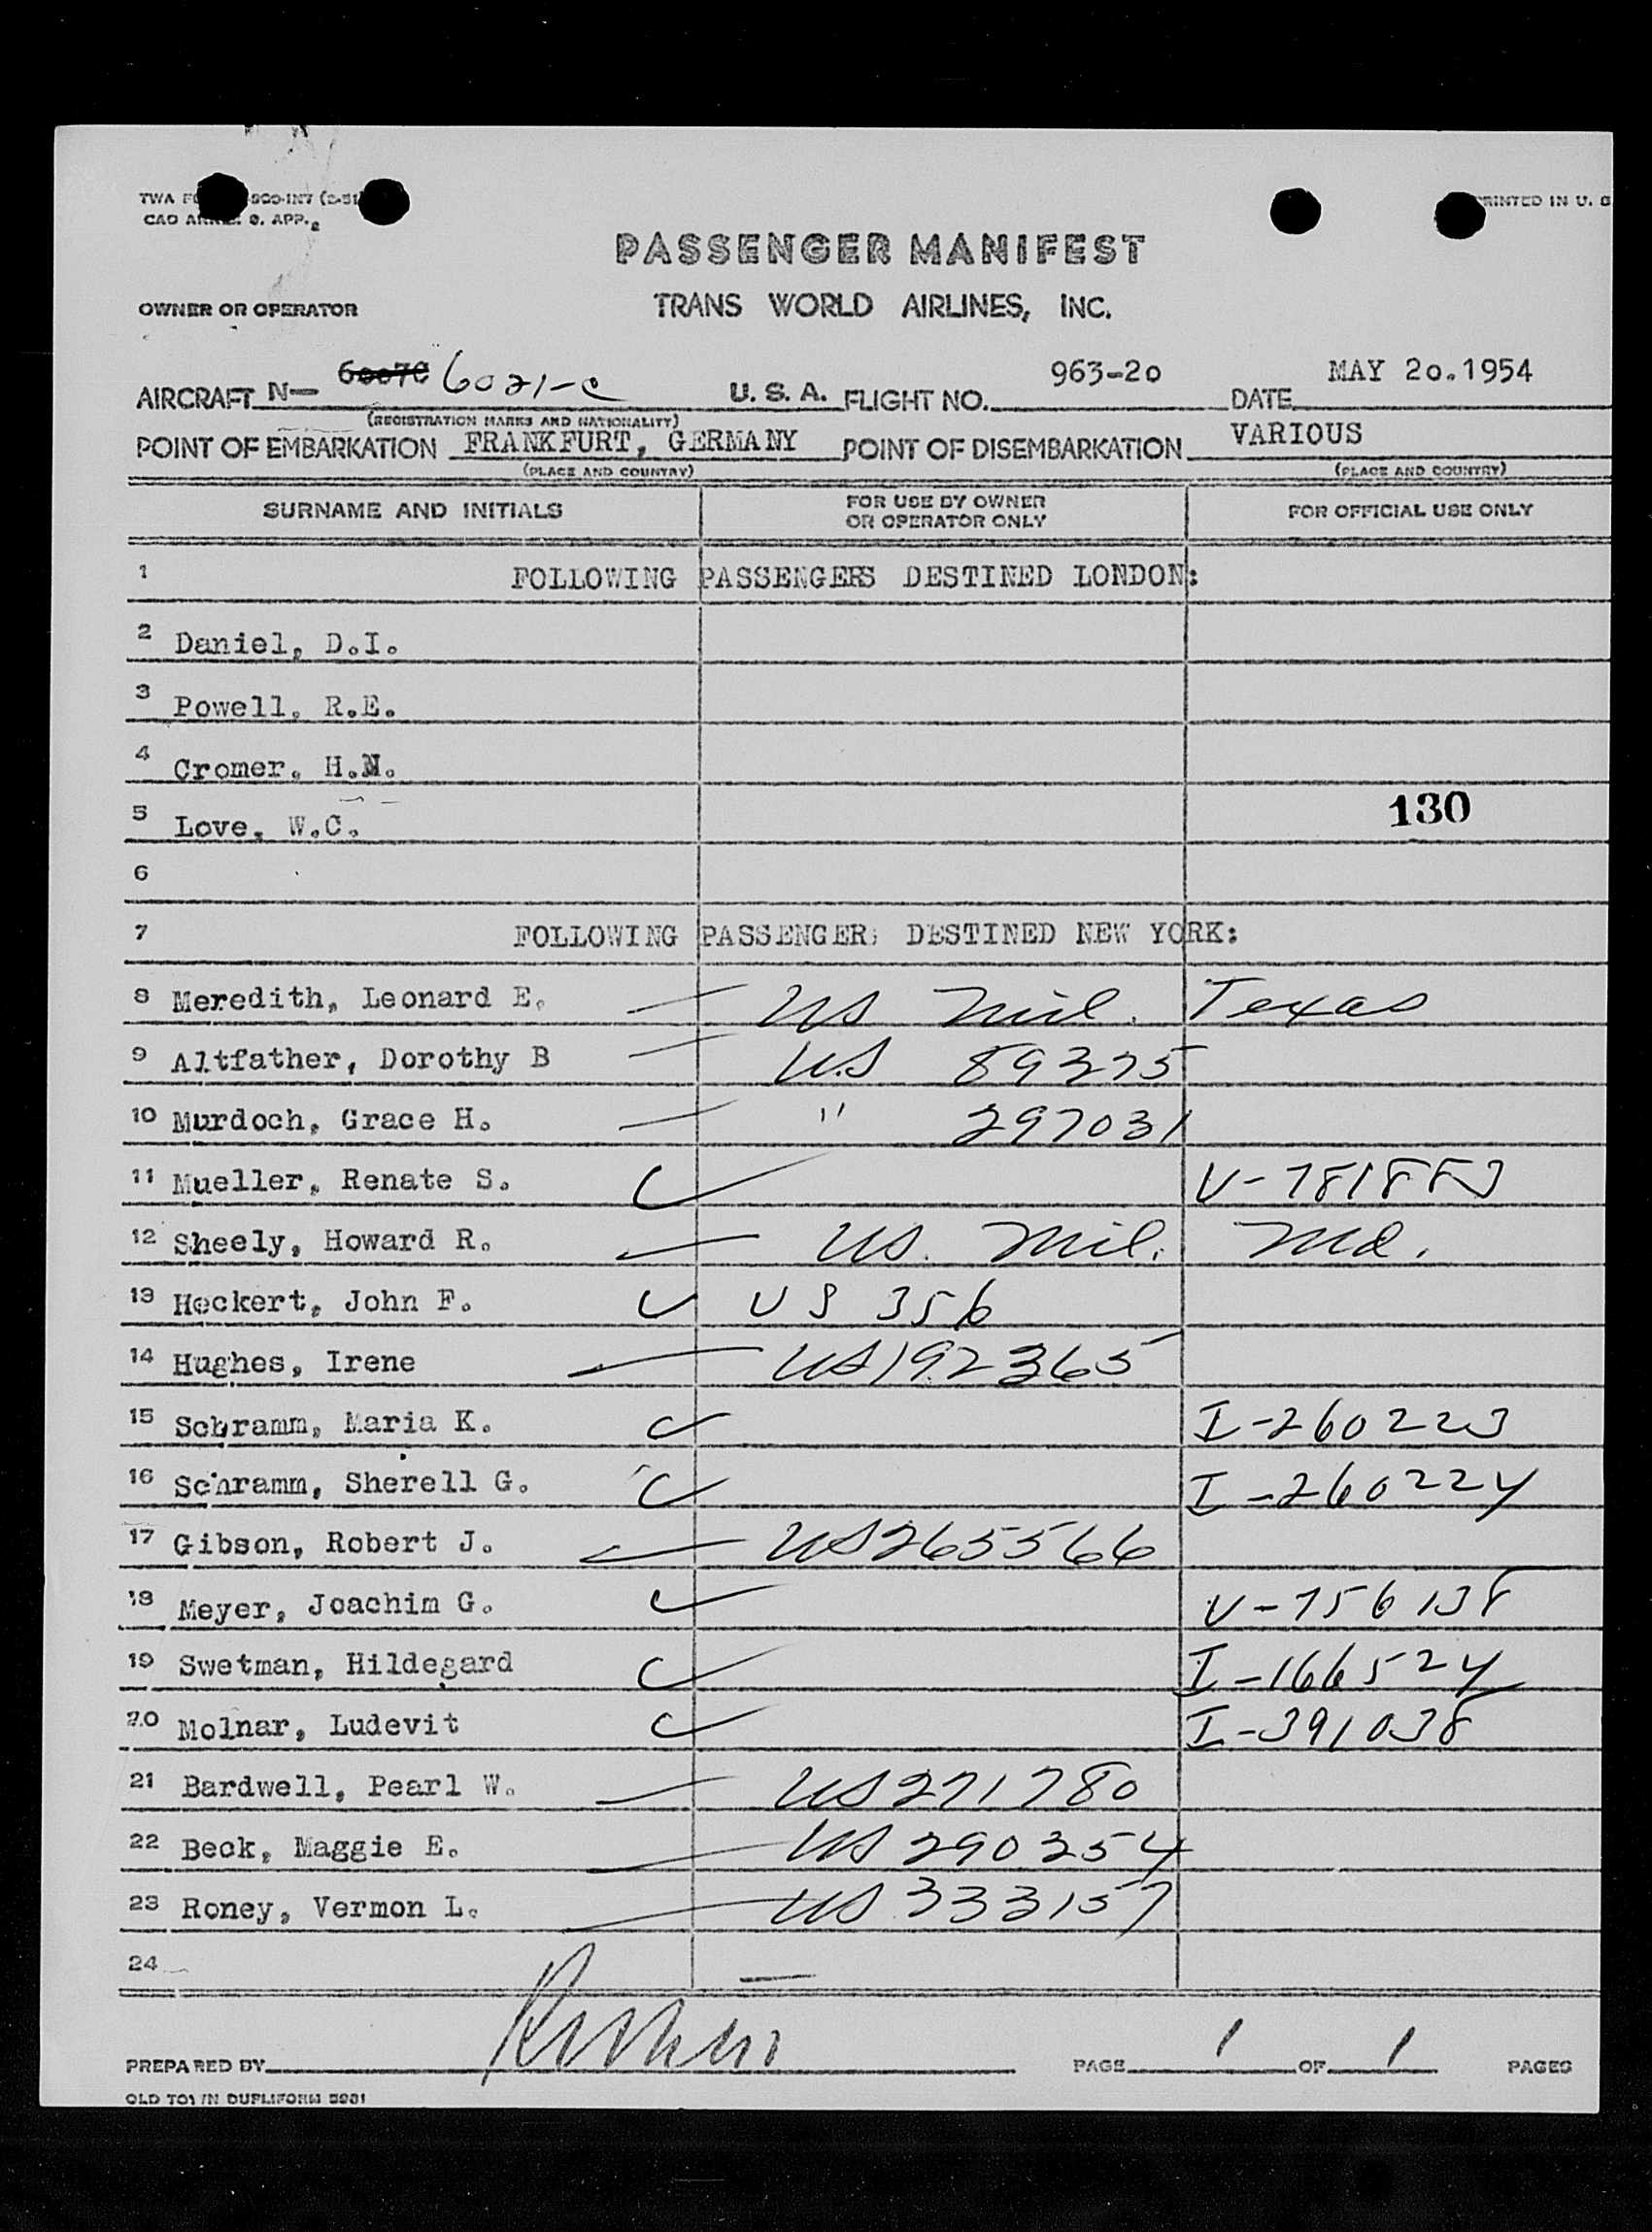 PASSENGER MANIFEST
PRINTED IN U. S
OWNER OR OPERATOR TRANS WORLD AIRLINES, INC.
AIRCRAFT N— 6007C 6021-C U. S. A. FLIGHT NO. 963-20 DATE MAY 20.1954
(REGISTRATION MARKS AND NATIONALITY)
POINT OF EMBARKATION FRANKFURT, GERMANY POINT OF DISEMBARKATION VARIOUS
(PLACE AND COUNTRY) (PLACE AND COUNTRY)
SURNAME AND INITIALS FOR USE BY OWNER OR OPERATOR ONLY FOR OFFICIAL USE ONLY
1 FOLLOWING PASSENGERS DESTINED LONDON:
2 Daniel, D.I.
3 Powell, R.E.
4 Cromer, H.M.
5 Love, W.C. 130
6
7 FOLLOWING PASSENGER DESTINED NEW YORK:
8 Meredith, Leonard E. US Mil. Texas
9 Altfather, Dorothy B US 89375
10 Murdoch, Grace H. " 297031
11 Mueller, Renate S. V-781883
12 Sheely, Howard R. US. Mil. Md.
13 Heckert, John F. US 356
14 Hughes, Irene US192365
15 Schramm, Maria K. I-260223
16 Schramm, Sherell G. I-260224
17 Gibson, Robert J. US265566
18 Meyer, Joachim G. V-756138
19 Swetman, Hildegard I-166524
20 Molnar, Ludevit I-391038
21 Bardwell, Pearl W. US271780
22 Beck, Maggie E. US 290354
23 Roney, Vermon L. US 333157
24
PREPARED BY PAGE 1 OF 1 PAGES